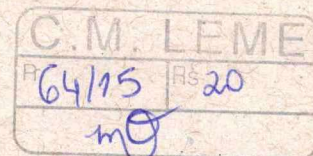 C.M. LEME
P 64/15 Rs 20